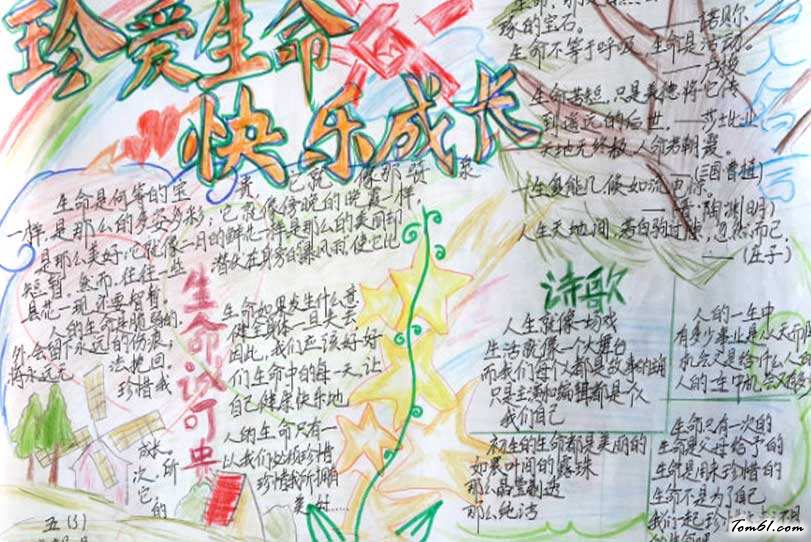 珍爱生命
快乐成长
琢的宝石。
——诺贝尔
生命不等于呼吸，生命是活动。
——卢梭
生命苦短，只是美德将它传
到遥远的后世。——莎士比亚
天地无终极，人命若朝霜。
——(三国曹植)
一生复能几何，倏如流电惊。
(晋·陶渊明)
人生天地间，若白驹过隙，忽然而已。
——(庄子)
生命是何等的宝贵，它就像那喷泉
一样，是那么的多姿多彩，它就像傍晚的晚霞一样，
是那么美好；它就像一月的鲜花一样是那么的美丽却
短暂。然而，往往一些潜伏在身旁的暴风雨，使它比
昙花一现还要短暂。
人的生命是脆弱的，
外会留下永远的伤痕，
将永远无法挽回。
珍惜我
生命诚可贵
生命如果发生什么意
健全身体一旦失去
因此，我们应该好好
们生命中的每一天，让
自己健康快乐地
成长。
人的生命只有一
次，所
以我们必须珍惜
它
珍惜我所拥有
的
美好……
五(3)
诗歌
人生就像一场戏
生活就像一个大舞台
而我们每个人都是故事的主角
只是主演和编辑都是
我们自己
人的一生中
有多少事业是从天而降
机会只是给什么人
人的一生中机会
初生的生命都是美丽的
如晨叶间的露珠
那么晶莹剔透
那么纯洁
生命只有一次的
生命是父母给予的
生命是用来珍惜的
生命不是为了自己
我们一起珍
的生命吧
Tom61.com